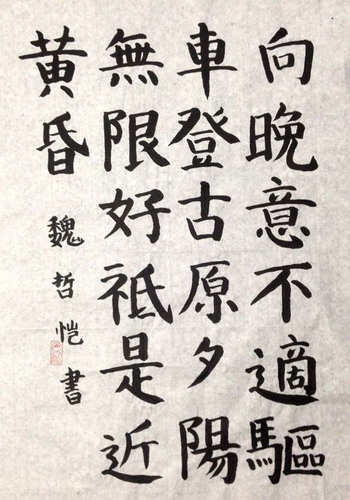 向晚意不適驅
車登古原夕陽
無限好祗是近
黃昏
魏哲恺書